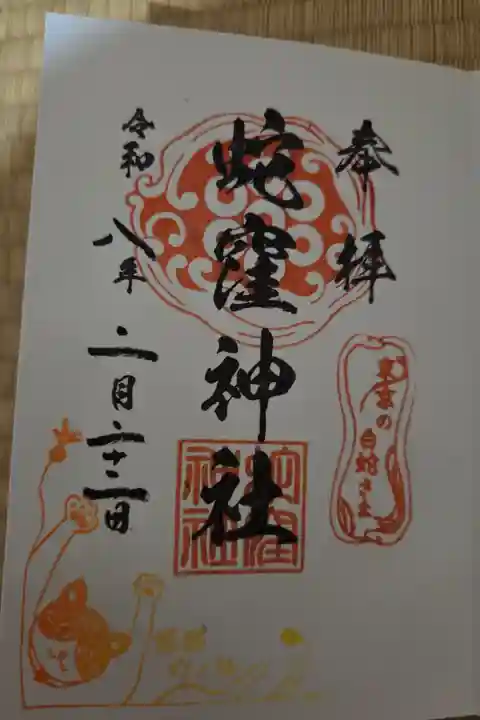 奉拝
東京の白蛇さま
蛇窪神社
蛇窪
神社
令和八年二月二十二日